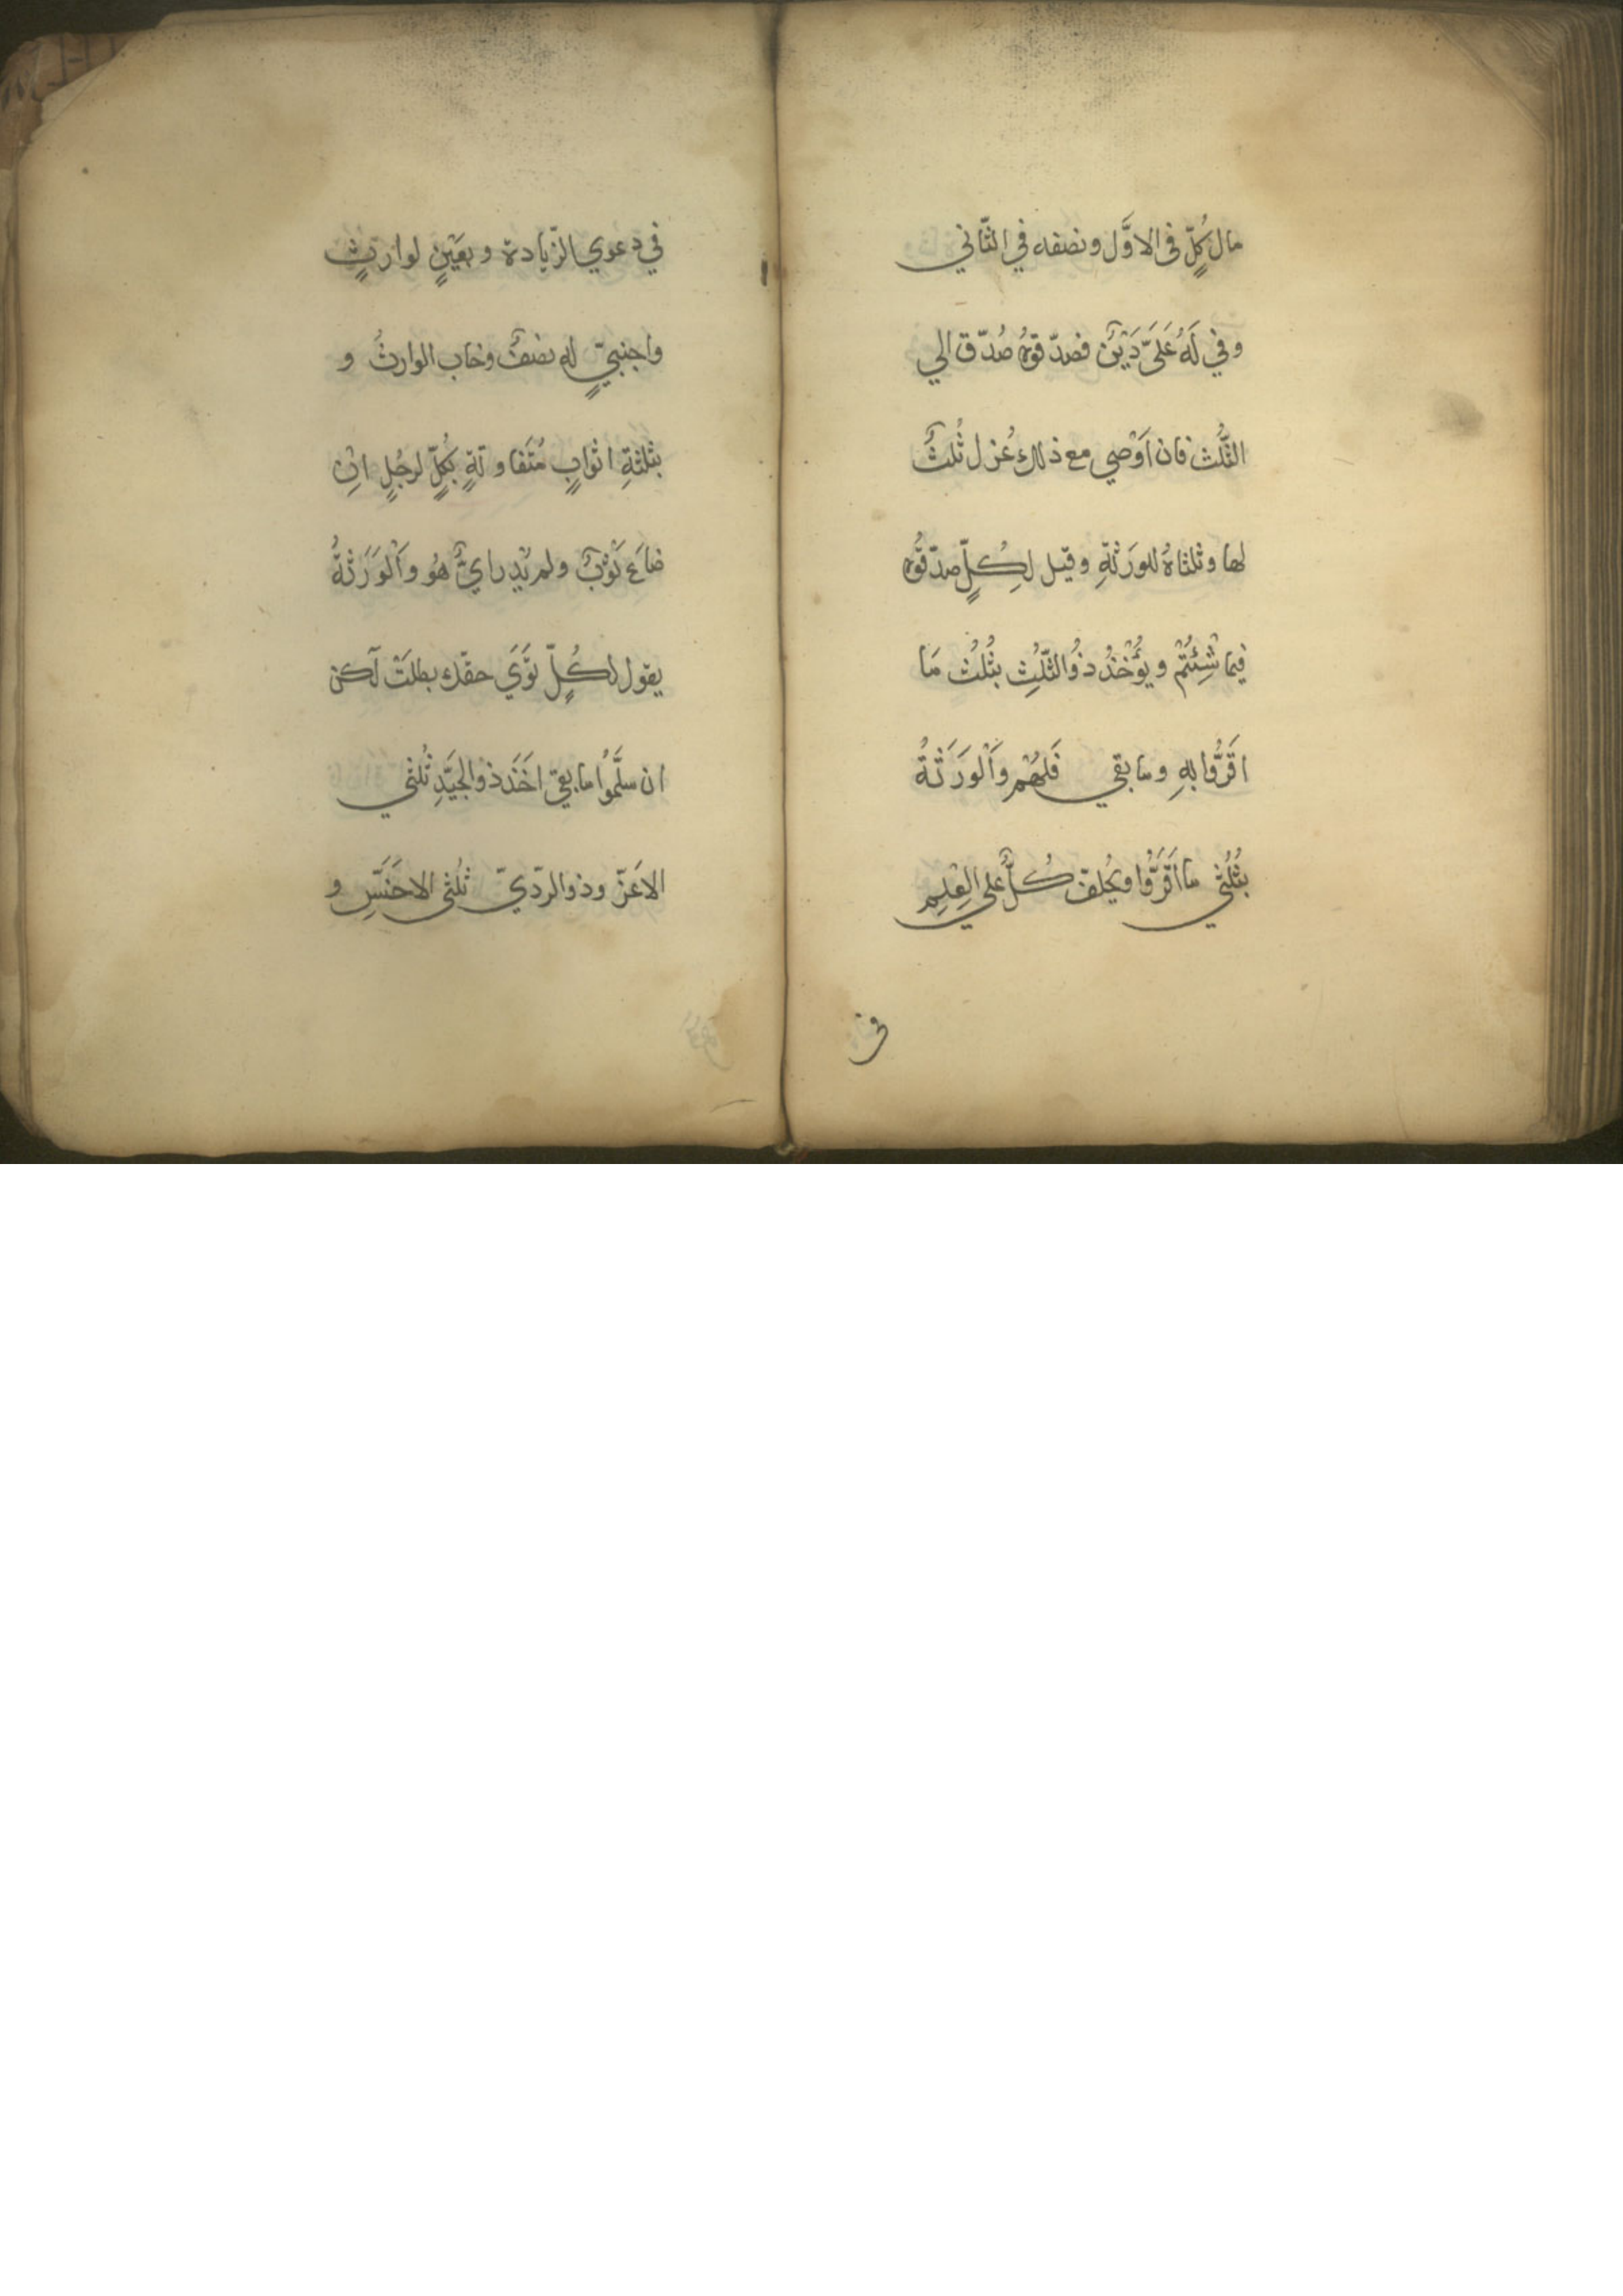 مال كُلٍّ فى الاوَّل ونصفه في الثّاني
وفي لَهُ عَلَيَّ دَيْنٌ فصدّقوهُ صُدّق الي
الثّلُث فان اَوْصي مع ذلك عُزل ثُلثٌ
لها وثلثاهُ للورَثةِ وقيل لِكُلٍّ صدّقُوه
فيما شِئْتُمْ ويُؤْخذُ ذُوالثّلُثِ بثُلُثِ مَا
اقَرُّوا بهِ وما بقي فَلهُمْ وَالْورَثةُ
بثُلُثي ما اَقَرُّوا ويُحلفُ كُلٌّ علي العِلمِ
فى
في دعوي الزّيادة وبعَيْنٍ لوارثٍ
واجنبيٍّ له نصفٌ وخاب الوارثُ و
بثلثةِ اثوابٍ مُتَفاوتةٍ بكُلٍّ لرجُلٍ انْ
ضاعَ ثَوْبٌ ولم يُدر ايٌّ هُو وَالْوَرَثةُ
يقول لكُلٍّ تَوَيَ حقّك بطلَتْ لَكن
ان سلَّمُوا ما بقيَ اخَذ ذوالجيّدِ ثُلثي
الاعَزّ وذوالردّيّ ثلثى الاخَسِّ و